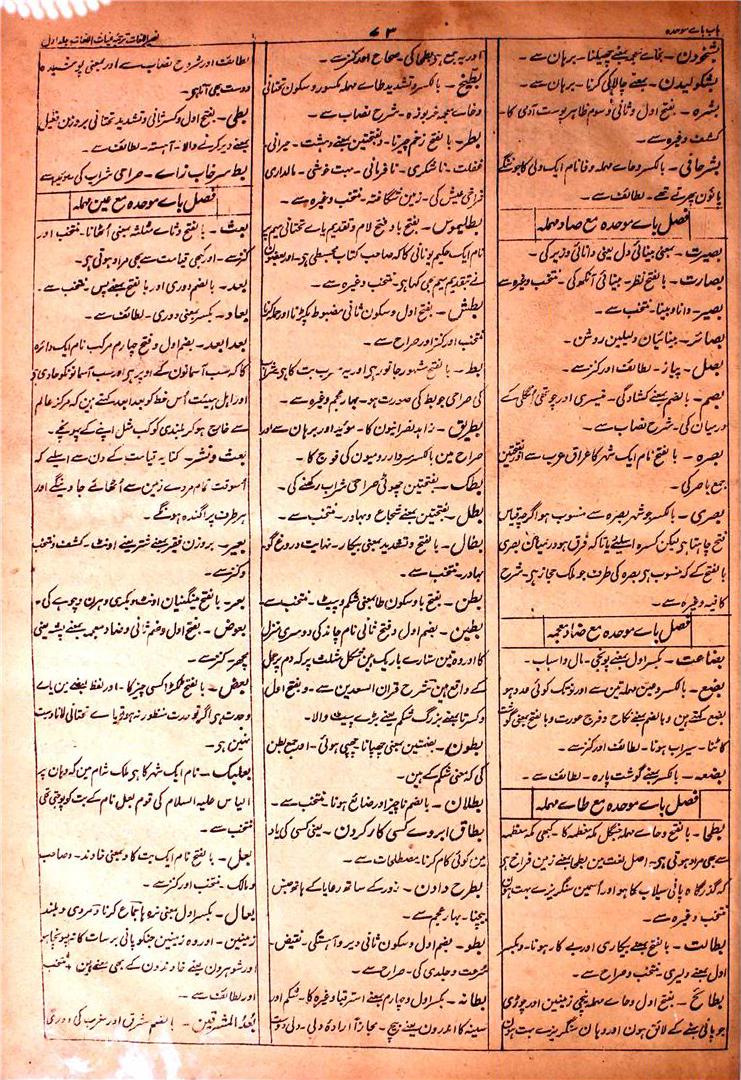 باب باے موحدہ
۷۳
نصیر اللغات ترجمہ غیاث اللغات جلد اول
بشخودن - بخاے معجمہ بمعنے چھیلنا - برہان سے -
بشکولیدن - بمعنے چالاکی کرنا - برہان سے -
بشرہ - بفتح اول وثانی وسوم ظاہر پوست آدمی کا -
کشف وغیرہ سے -
بشر حافی - بالکسر وحاے مہملہ وفا نام ایک ولی کا جو ننگے
پانون پھرتے تھے - لطائف سے -
فصل باے موحدہ مع صاد مہملہ
بصیرت - بمعنی بینائی دل یعنی دانائی وزیرکی -
بصارت - بالفتح نظر - بینائی آنکھ کی - منتخب وغیرہ سے
بصیر - دانا وبینا - منتخب سے -
بصائر - بینائیان ودلیلین روشن -
بصل - پیاز - لطائف اور کنز سے -
بصم - بالضم بمعنے کشادگی - تیسری اور چوتھی اُنگلی کے
درمیان کی - شرح نصاب سے -
بصرہ - بالفتح نام ایک شہر کا عراق عرب سے اور بفتحتین
جمع باصر کی -
بصری - بالکسر جو شہر بصرہ سے منسوب ہو اگرچہ قیاس
فتح چاہتا ہی لیکن کسرہ اسلئے ہی تاکہ فرق ہو درمیان بصری
بالفتح کے کہ منسوب ہی بصرہ کی طرف جو ملک حجاز ہی - شرح
کافیہ وغیرہ سے -
فصل باے موحدہ مع ضاد معجمہ
بضاعت - بکسر اول بمعنے پونجی - مال واسباب -
بضع - بالکسر وعین مہملہ تین سے اور نو تک کوئی عدد ہو
بضع کہتے ہین وبالضم بمعنے نکاح وفرج عورت وبالفتح بمعنی گوشت
کاٹنا - سیراب ہونا - لطائف اور کنز سے -
بضعہ - بالکسر بمعنے گوشت پارہ - لطائف سے -
فصل باے موحدہ مع طاے مہملہ
بطحا - بالفتح وحاے مہملہ جنگل مکہ معظمہ کا - کبھی مکہ معظمہ
سے بھی مراد ہوتی ہی - اصل لغت مین بطحی بمعنے زمین فراخ ہی
کہ گذرگاہ پانی سیلاب کا ہو اور اُسمین سنگریزے بہت ہون
منتخب وغیرہ سے -
بطالت - بالفتح بمعنے بیکاری اور بے کار ہونا - وبکسر
اول بمعنے دلیری - منتخب وصراح سے -
بطائح - بفتح اول وحاے مہملہ نیچی زمینین اور چوڑی
جو پانی بہنے کے لائق ہون اور وہان سنگریزے بہت ہون
اور یہ جمع ہی بطحا کی - صحاح اور کنز سے -
بطیخ - بالکسر وتشدید طاے مہملہ مکسور وسکون تحتانی
وخاے معجمہ خربوزہ - شرح نصاب سے -
بطر - بالفتح زخم چیرنا - وبفتحتین بمعنے دہشت - حیرانی
غفلت - ناشکری - نافرمانی - بہت خوشی - مالداری
فراخی عیش کی - زمین شگافتہ - منتخب وغیرہ سے -
بطلیموس - بفتح با وفتح لام وتقدیم یاے تحتانی میم پر
نام ایک حکیم یونانی کا کہ صاحب کتاب مجسطی ہی - اور بعضون
نے تقدیم میم بھی کہا ہی - منتخب وغیرہ سے -
بطش - بفتح اول وسکون ثانی مضبوط پکڑنا اور حملہ کرنا
منتخب اور کنز اور صراح سے -
بط - بالفتح مشہور جانور ہی اور یہ معرب بت کا ہی شراب
کی صراحی جو بط کی صورت ہو - بہار عجم وغیرہ سے -
بطریق - زاہد نصرانیون کا - مؤید اور برہان سے اور
صراح مین بالکسر سردار رومیون کی فوج کا -
بطک - بفتحتین چھوٹی صراحی شراب رکھنے کی -
بطل - بفتحتین بمعنے شجاع وبہادر - منتخب سے -
بطال - بالفتح وتشدید بمعنی بیکار - نہایت دروغ گو -
بہادر - منتخب سے -
بطن - بفتح با وسکون طا بمعنی شکم وپیٹ - منتخب سے -
بطین - بضم اول وفتح ثانی نام چاند کی دوسری منزل
کا اور وہ تین ستارے باریک ہین بشکل مثلث پر کہ دم پر حمل
کے واقع ہین شرح قران السعدین سے - وبفتح اول
وکسر طا بمعنے بزرگ شکم یعنے بڑے پیٹ والا -
بطون - بضمتین بمعنی چھپانا چھپی ہوئی - اور جمع بطن
کی کہ بمعنی شکم کے ہین -
بطلان - بالضم ناچیز اور ضائع ہونا - منتخب سے -
بطاق ابروے کسی کار کردن - یعنی کسی کی یاد
مین کوئی کام کرنا - مصطلحات سے -
بطرح دادن - زور کے ساتھ رعایا کے ہاتھ جنس
بیچنا - بہار عجم سے -
بطو - بضم اول وسکون ثانی دیر وآہستگی - نقیض -
سرعت وجلدی کی - صراح سے -
بطانہ - بکسر اول وچہارم بمعنے استر قبا وغیرہ کا - شکم اور
سینہ کا اندرون یعنے بیچ - مجازاً ارادہ دلی - دلی دوست
لطائف اور شروح نصاب سے اور بمعنی پوشیدہ
دوست بھی آتا ہی -
بطی - بفتح اول وکسر ثانی وتشدید تحتانی بروزن فعیل
بمعنے دیر کرنے والا - آہستہ - لطائف سے -
بط سرخاب زاے - صراحی شراب کی
فصل باے موحدہ مع عین مہملہ
بعث - بالفتح وثاے مثلثہ بمعنی اُٹھانا - منتخب اور
کنز سے - اور کبھی قیامت سے بھی مراد ہوتی ہی -
بعد - بالضم دوری اور بالفتح بمعنے پس - منتخب سے -
بعاد - بکسر بمعنی دوری - لطائف سے -
بعد ابعد - بضم اول وفتح چہارم مرکب نام ایک دائرہ
کا کہ سب آسمانون کے اوپر ہی اور سب آسمانونکو حاوی ہی
اور اہل ہیئت اُس خط کو بعد ابعد کہتے ہین کہ مرکز عالم
سے خارج ہو کر بلندی کو کب مثل اپنے کے پہونچے -
بعث ونشر - کنایہ قیامت کے دن سے اسلئے کہ
اُسوقت تمام مردے زمین سے اُٹھائے جاوینگے اور
ہر طرف پراگندہ ہونگے -
بعیر - بروزن فقیر بمعنے شتر یعنے اونٹ - کشف ومنتخب
وکنز سے -
بعر - بالفتح مینگنیان اونٹ وبکری وہرن وچوہے کی -
بعوض - بفتح اول وضم ثانی وضاد معجمہ بمعنے پشہ یعنی
مچھر - کنز سے -
بعض - بالفتح ٹکڑا کسی چیز کا - اور لفظ بعضے مین یاے
وحدت ہی اگر وحدت منظور نہو تو یاے تحتانی لانا درست
نہین ہی -
بعلبک - نام ایک شہر کا ہی ملک شام مین کہ وہان پر
الیاس علیہ السلام کی قوم بعل نام کے بت کو پوجتی تھی
منتخب سے -
بعل - بالفتح نام ایک بت کا وبمعنی خاوند - وصاحب
ومالک - منتخب اور کنز سے -
بعال - بکسر اول بمعنی زن وشو باہم جماع کرنا ومردی وبلند
زمینین - اور وہ زمینین جنکو پانی برسات کا نہ پہونچا ہو
اور شوہرون یعنے خاوندون کے بھی معنے ہین - منتخب
اور لطائف سے -
بُعدُ المشرقین - بالضم مشرق اور مغرب کی دوری